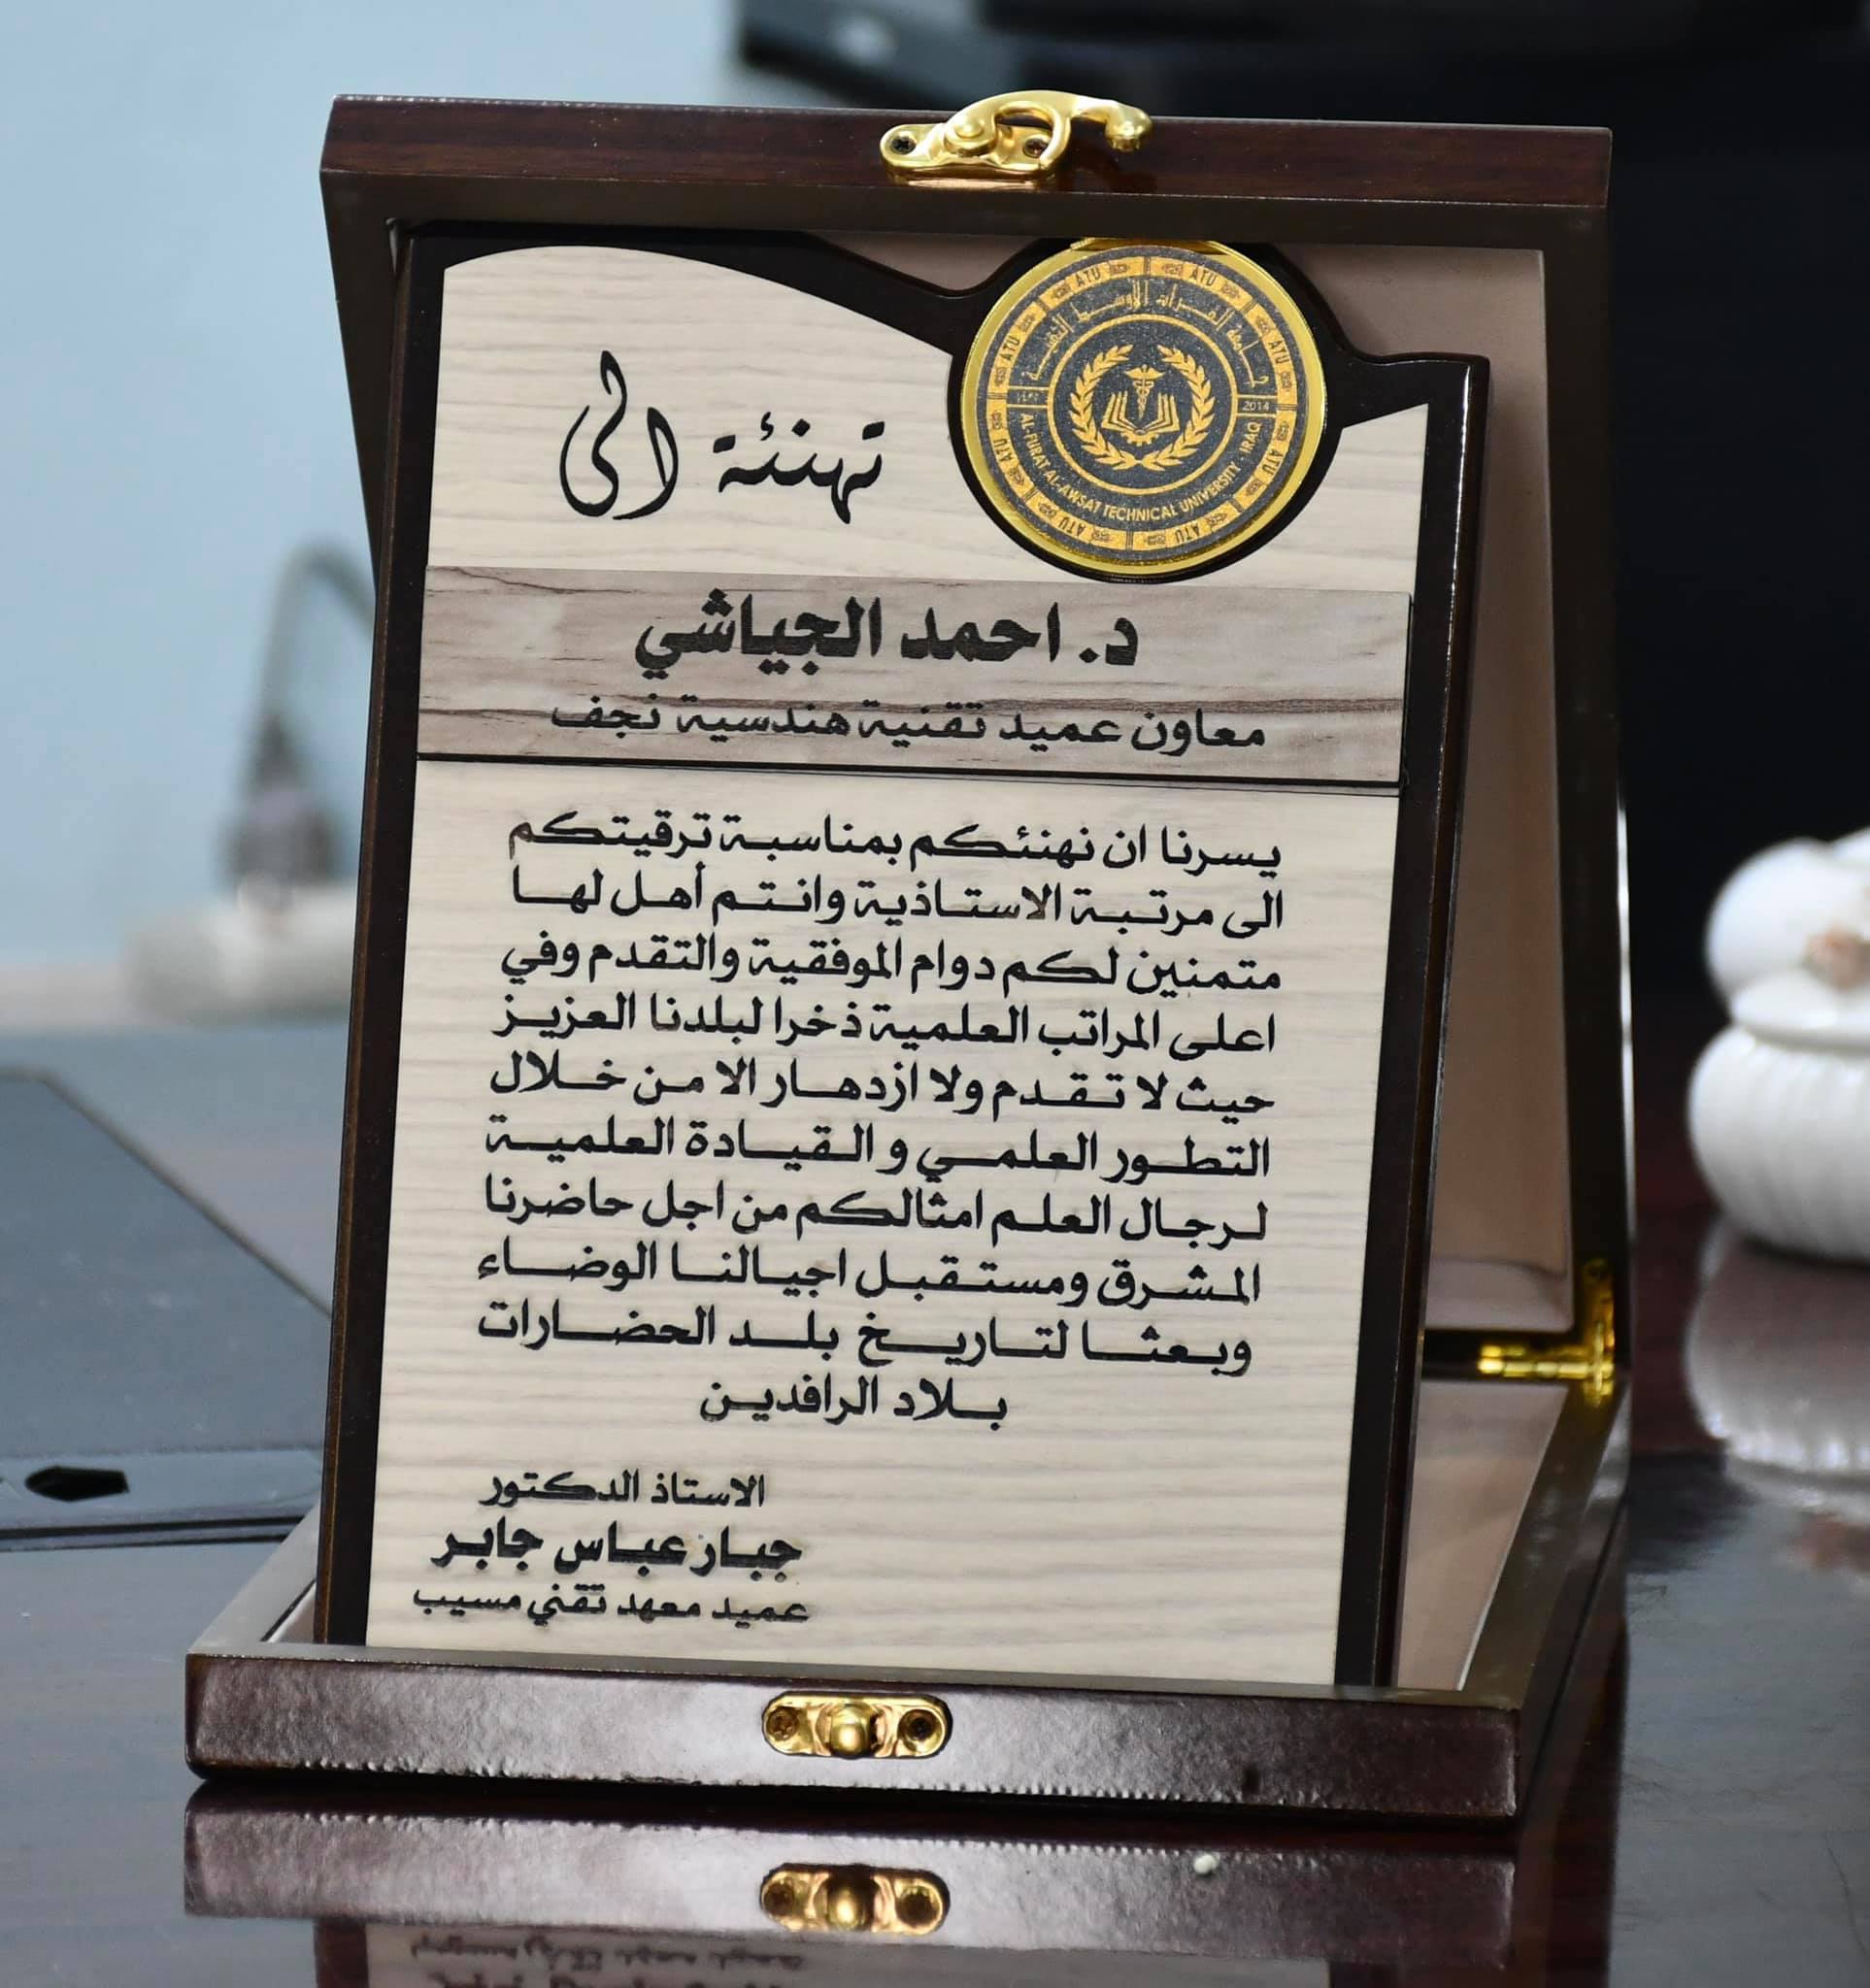 تهنئة الى
جامعة الفرات الأوسط التقنية
2014
AL-FURAT AL-AWSAT TECHNICAL UNIVERSITY - IRAQ
ATU ATU ATU ATU ATU ATU ATU ATU
د. احمد الجياشي
معاون عميد تقنية هندسية نجف
يسرنا ان نهنئكم بمناسبة ترقيتكم
الى مرتبة الاستاذية وانتم أهل لها
متمنين لكم دوام الموفقية والتقدم وفي
اعلى المراتب العلمية ذخرا لبلدنا العزيز
حيث لا تقدم ولا ازدهار الا من خلال
التطور العلمي و القيادة العلمية
لرجال العلم امثالكم من اجل حاضرنا
المشرق ومستقبل اجيالنا الوضاء
وبعثا لتاريخ بلد الحضارات
بلاد الرافدين
الاستاذ الدكتور
جبار عباس جابر
عميد معهد تقني مسيب